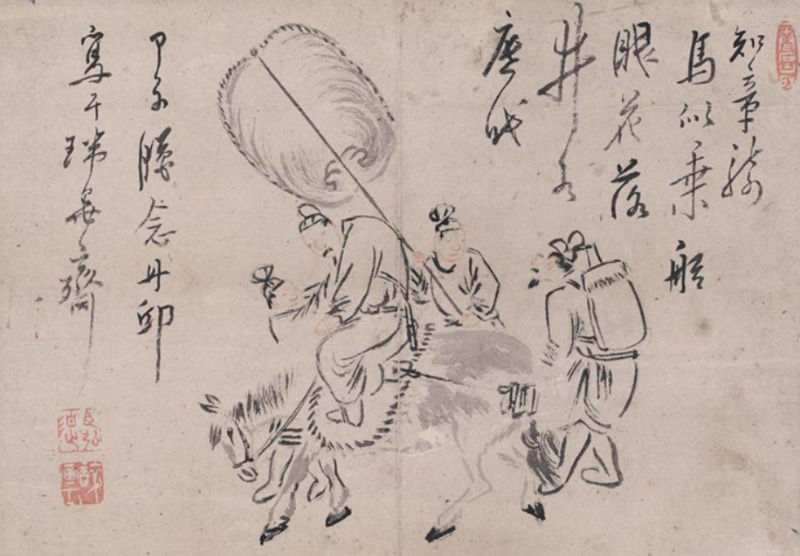 知章騎
馬似乘船
眼花落
井水
底眠
甲子臘念丹邱
寫于瑞齋